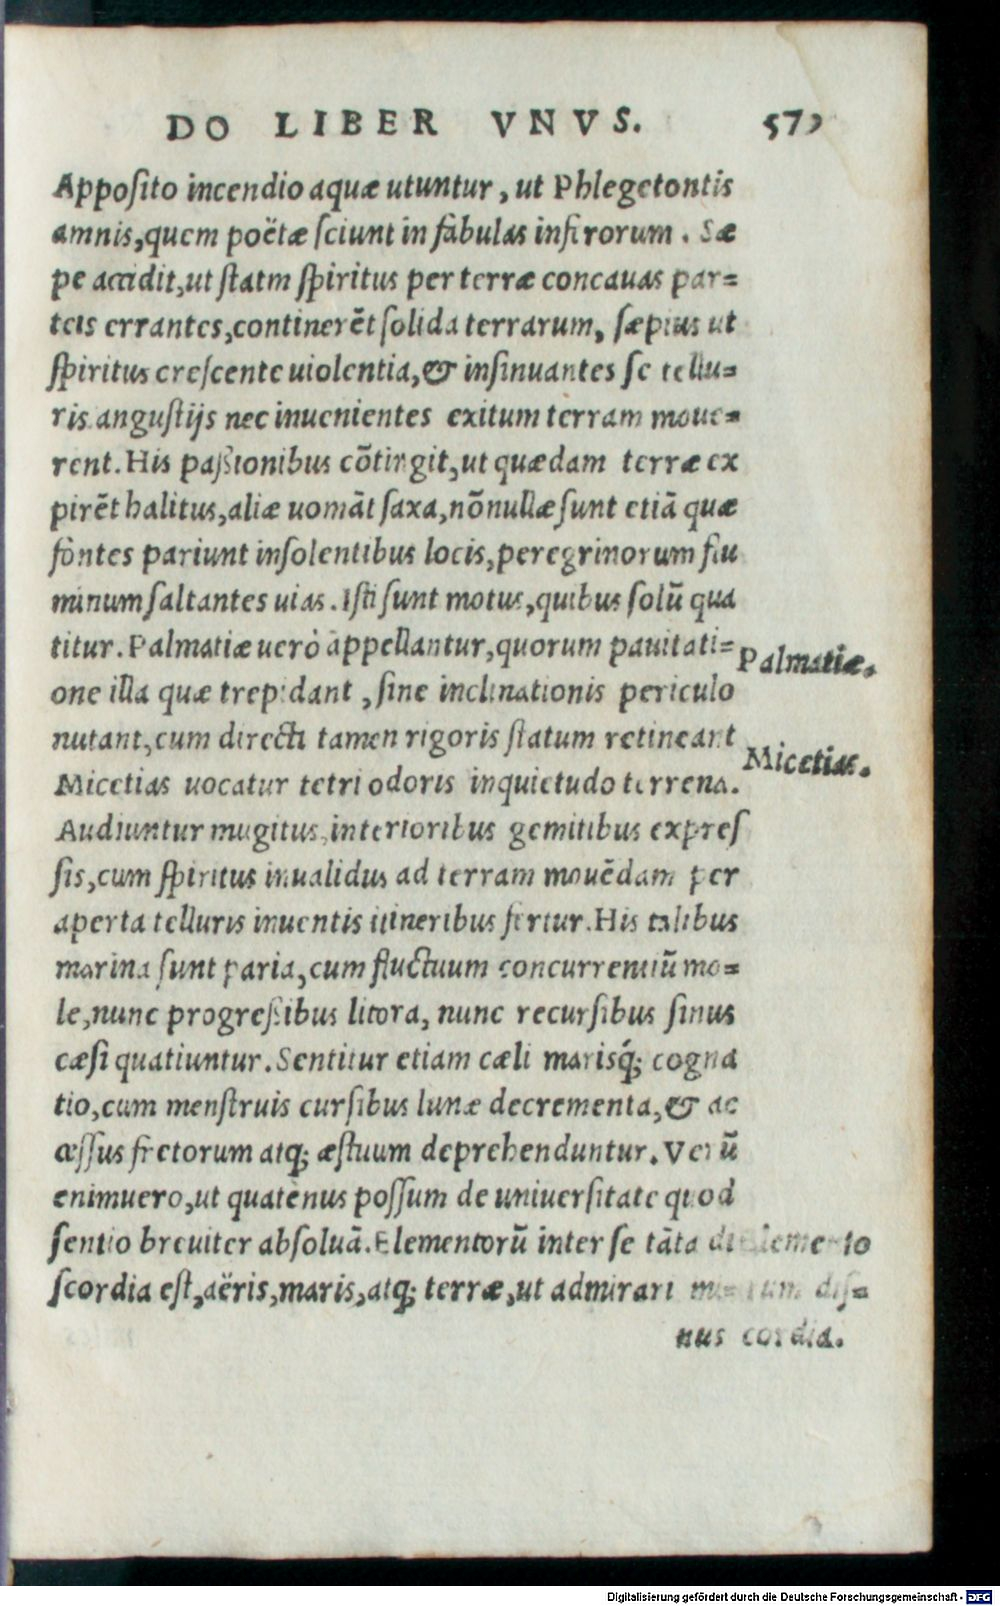 DO LIBER VNVS. 579
Apposito incendio aquæ utuntur, ut Phlegetontis
amnis, quem poëtæ sciunt in fabulas inferorum. Sæ
pe accidit, ut statm spiritus per terræ concauas par=
teis errantes, continerēt solida terrarum, sæpius ut
spiritus crescente uiolentia, & insinuantes se tellu=
ris angustijs nec inuenientes exitum terram moue=
rent. His passionibus cōtingit, ut quædam terræ ex
pirēt halitus, aliæ uomāt saxa, nōnullæ sunt etiā quæ
fontes pariunt insolentibus locis, peregrinorum flu
minum saltantes uias. Isti sunt motus, quibus solū qua
titur. Palmatiæ uerò appellantur, quorum pauitati= Palmatiæ.
one illa quæ trepidant, sine inclinationis periculo
nutant, cum directi tamen rigoris statum retineant
Micetias uocatur tetri odoris inquietudo terrena. Micetias.
Audiuntur mugitus, interioribus gemitibus expres
sis, cum spiritus inualidus ad terram mouēdam per
aperta telluris inuentis itineribus fertur. His talibus
marina sunt paria, cum fluctuum concurrentiū mo=
le, nunc progressibus litora, nunc recursibus sinus
cæsi quatiuntur. Sentitur etiam cæli marisq́; cogna
tio, cum menstruis cursibus lunæ decrementa, & ac
cessus fretorum atq; æstuum deprehenduntur. Verū
enimuero, ut quatenus possum de uniuersitate quod
sentio breuiter absoluā. Elementorū inter se tāta di Elemento
scordia est, aëris, maris, atq; terræ, ut admirari mi= rum dis=
nus cordia.